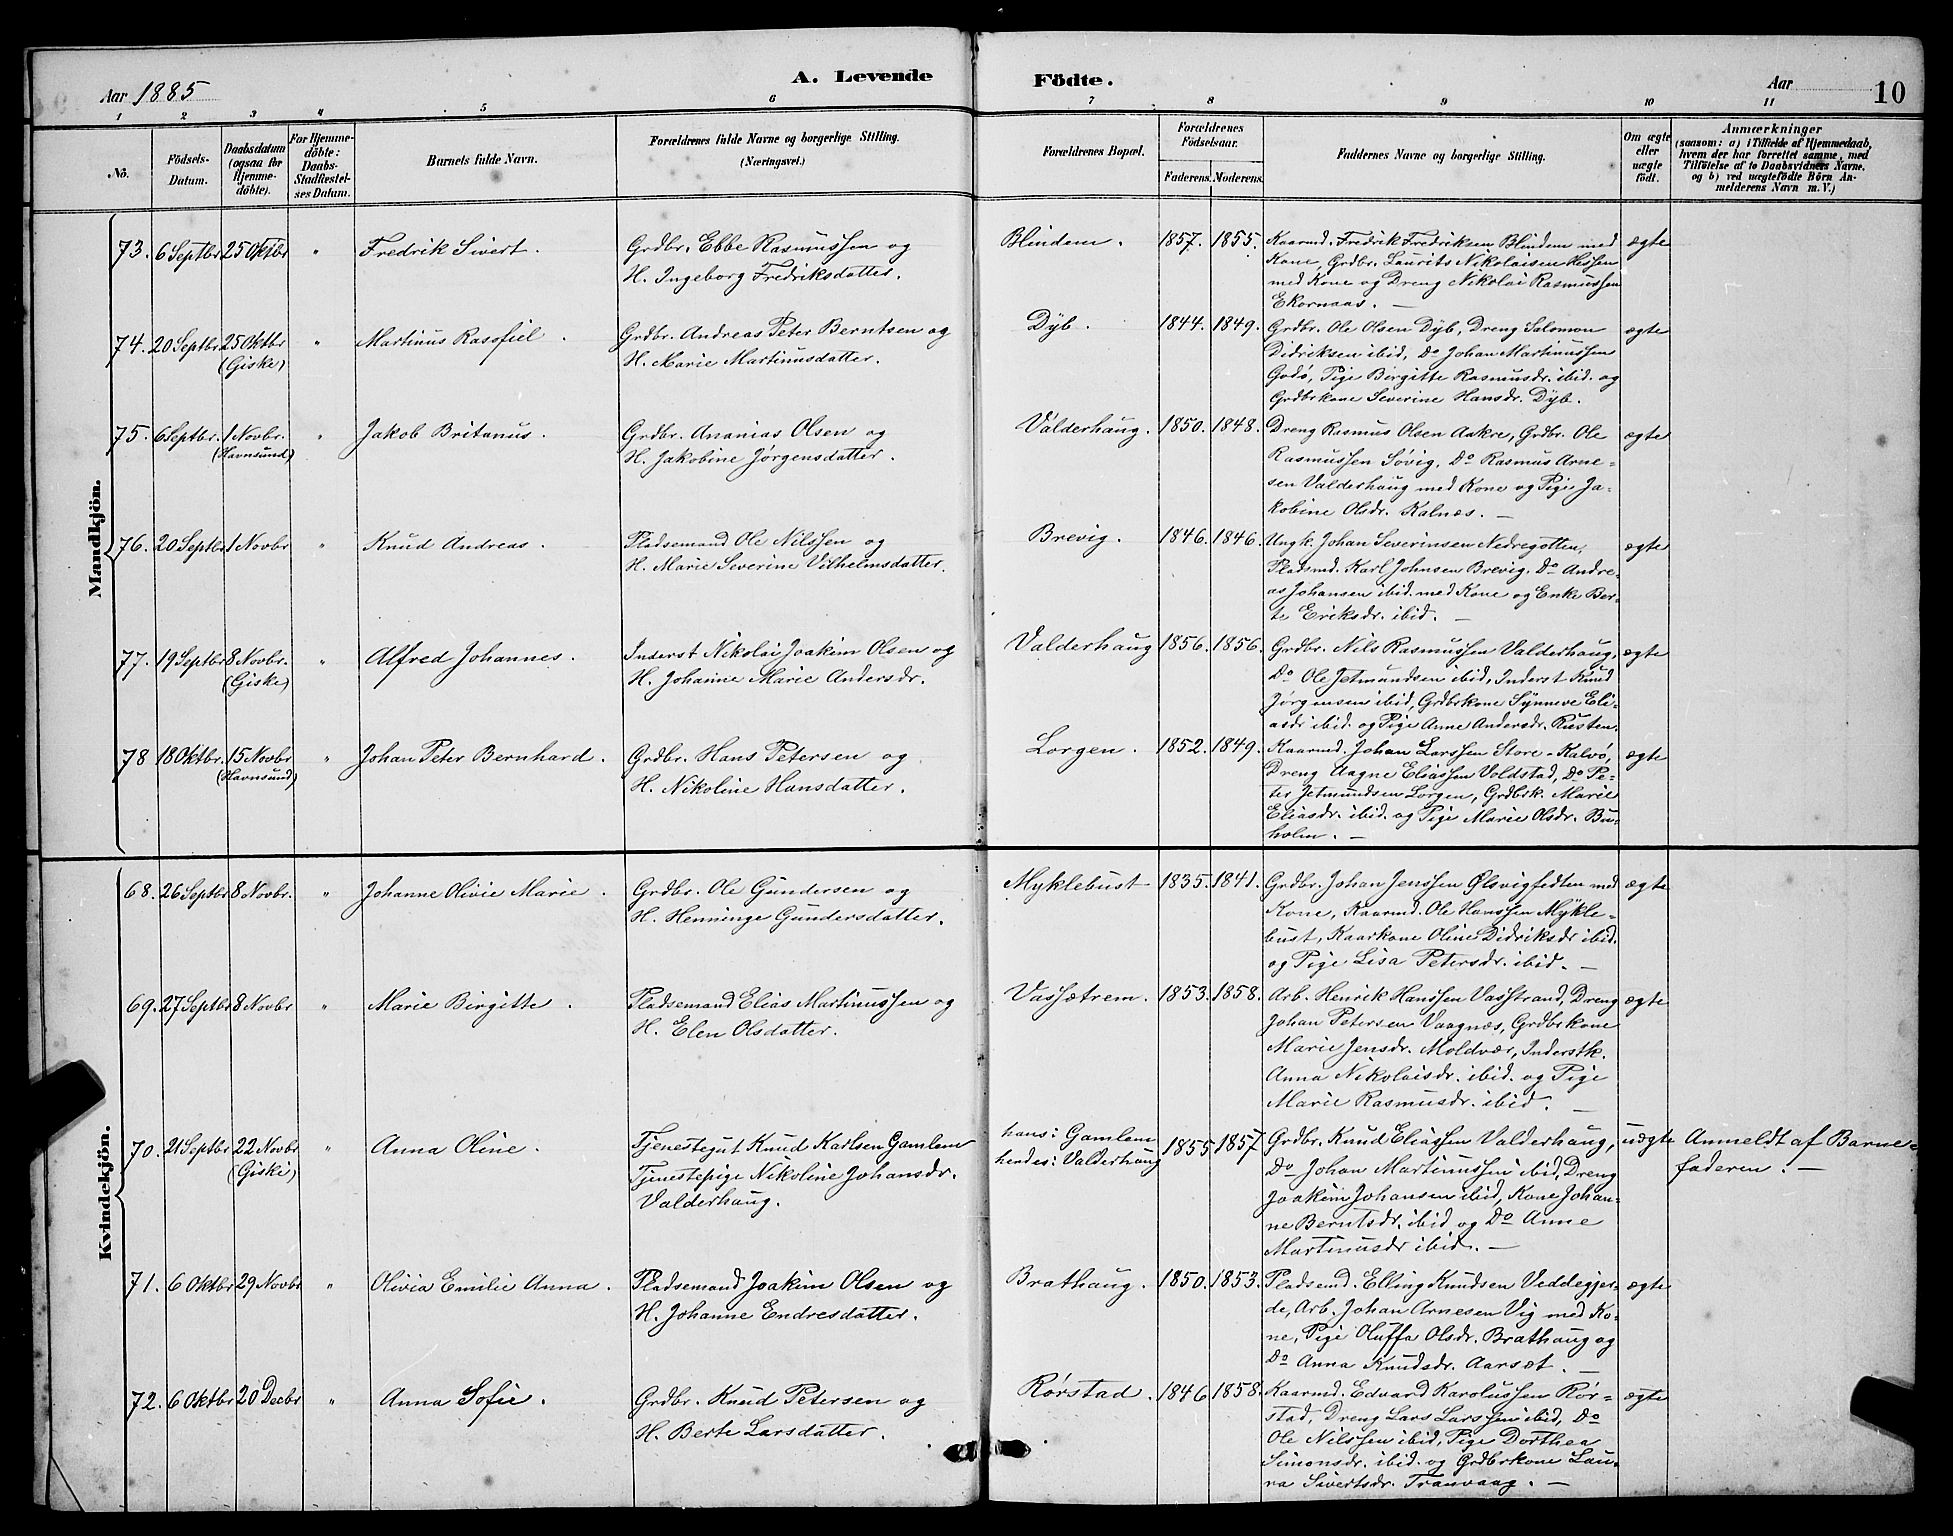 Aar 1885
A. Levende Födte.
Aar
10
1 2 3 4 5 6 7 8 9 10 11
No.
Födsels-Datum.
Daabsdatum (ogsaa for Hjemme-döbte).
For Hjemme-döbte: Daabs-Stadfestel-ses Datum.
Barnets fulde Navn.
Forældrenes fulde Navne og borgerlige Stilling. (Næringsvei.)
Forældrenes Bopæl.
Forældrenes Födselsaar.
Faderens. Moderens.
Faddernes Navne og borgerlige Stilling.
Om ægte eller uægte födt.
Anmærkninger
(saasom: a) i Tilfælde af Hjemmedaab,
hvem der har forrettet samme, med
Tilföielse af to Daabsvidners Navne.
og b) ved uægtefödte Börn An-
melderens Navn m. V.)
Mandkjön.
73. 6 Septbr 25 Oktbr " Fredrik Sivert. Grdbr. Ebbe Rasmussen og Blindem. 1857. 1855. Kaarmd. Fredrik Fredriksen Blindem med ægte
H. Ingeborg Fredriksdatter. Kone, Grdbr. Laurits Nikolaisen Hessen
med Kone og Dreng Nikolai Rasmussen
Ekornaas. —
74. 20 Septbr 25 Oktbr " Martinus Rasofiel. Grdbr. Andreas Peter Berntsen og Dÿb. 1844. 1849. Grdbr. Ole Olsen Dÿb, Dreng Salomon ægte
(Giske) H. Marie Martinusdatter. Didriksen ibid, Do Johan Martinussen
Godø, Pige Birgitte Rasmusdr. ibid. og
Grdbrkone Severine Hansdr. Dÿb.
75. 6 Septbr. 1 Novbr. " Jakob Britanus. Grdbr. Ananias Olsen og Valderhaug. 1850. 1848. Dreng Rasmus Olsen Aakre, Grdbr. Ole ægte
(Havnsund) H. Jakobine Jørgensdatter. Rasmussen Søvig, Do Rasmus Arne-
sen Valderhaug med Kone og Pige Ja-
kobine Olsdr. Kalnæs. —
76. 20 Septbr 1 Novbr " Knud Andreas. Pladsemand Ole Nilssen og Brevig. 1846. 1846. Ungk. Johan Severinsen Nedregotten, ægte
H. Marie Severine Vilhelmsdatter. Pladsmd. Karl Johnsen Brevig, Do Andre-
as Johansen ibid. med Kone og Enke Ber-
te Eriksdr. ibid. —
77. 19 Septbr 8 Novbr. " Alfred Johannes. Inderst Nikolai Joakim Olsen og Valderhaug 1856. 1856. Grdbr. Nils Rasmussen Valderhaug, ægte
(Giske) H. Johanne Marie Andersdr. Do Ole Jetmundsen ibid, Inderst Knud
Jørgensen ibid, Grdbrkone Synneve Eli-
asdr ibid. og Pige Anne Andersdr. Rusten.
78 18 Oktbr. 15 Novbr " Johan Peter Bernhard. Grdbr. Hans Petersen og Lorgen. 1852. 1849. Kaarmd. Johan Larssen Store-Kalvø, ægte
(Havnsund) H. Nikoline Hansdatter. Dreng Aagne Eliassen Voldstad, Do Pe-
ter Jetmundsen Lorgen, Grdbrk. Marie
Eliasdr. ibid. og Pige Marie Olsdr. Bu-
holm. —
Kvindekjön.
68. 26 Septbr 8 Novbr. " Johanne Olivie Marie. Grdbr. Ole Gundersen og Myklebust 1835. 1841. Grdbr. Johan Jenssen Ølsvigfedten med ægte
H. Henninge Gundersdatter. Kone, Kaarmd. Ole Hanssen Mÿkle-
bust, Kaarkone Oline Didriksdr ibid.
og Pige Lisa Petersdr. ibid. —
69. 27 Septbr 8 Novbr " Marie Birgitte. Pladsemand Elias Martinussen og Vassætrem. 1853. 1858. Arb. Henrik Hanssen Vasstrand, Dreng ægte
H. Elen Olsdatter. Johan Petersen Vaagnæs, Grdbrkone
Marie Jensdr. Moldvær, Inderstk.
Anna Nikolaisdr. ibid. og Pige
Marie Rasmusdr. ibid. —
70. 21 Septbr 22 Novbr " Anna Oline. Tjenestegut Knud Karlsen Gamlem hans: Gamlem 1855 1857 Grdbr. Knud Eliassen Valderhaug, uægte Anmeldt af Barne-
(Giske) Tjenestepige Nikoline Johansdr. hendes: Valderhaug Do Johan Martinussen ibid, Dreng faderen. —
Valderhaug. Joakim Johansen ibid, Kone Johan-
ne Berntsdr. ibid og Do Anne
Martinusdr ibid. —
71. 6 Oktbr 29 Novbr " Olivia Emilie Anna. Pladsemand Joakim Olsen og Brathaug. 1850. 1853. Pladsemd. Elling Knudsen Veddegjer- ægte
H. Johanne Endresdatter. de, Arb. Johan Arnesen Vig med Ko-
ne, Pige Oluffa Olsdr. Brathaug og
Do Anna Knudsdr. Aarset. —
72. 6 Oktbr 20 Decbr " Anna Sofie. Grdbr. Knud Petersen og Rørstad. 1846 1858. Kaarmd. Edvard Karolussen Rør- ægte
H. Berte Larsdatter. stad, Dreng Lars Larssen ibid, Do
Ole Nilssen ibid, Pige Dorthea
Simonsdr. ibid. og Grdbrkone Lau-
ra Sivertsdr. Tranvaag. —